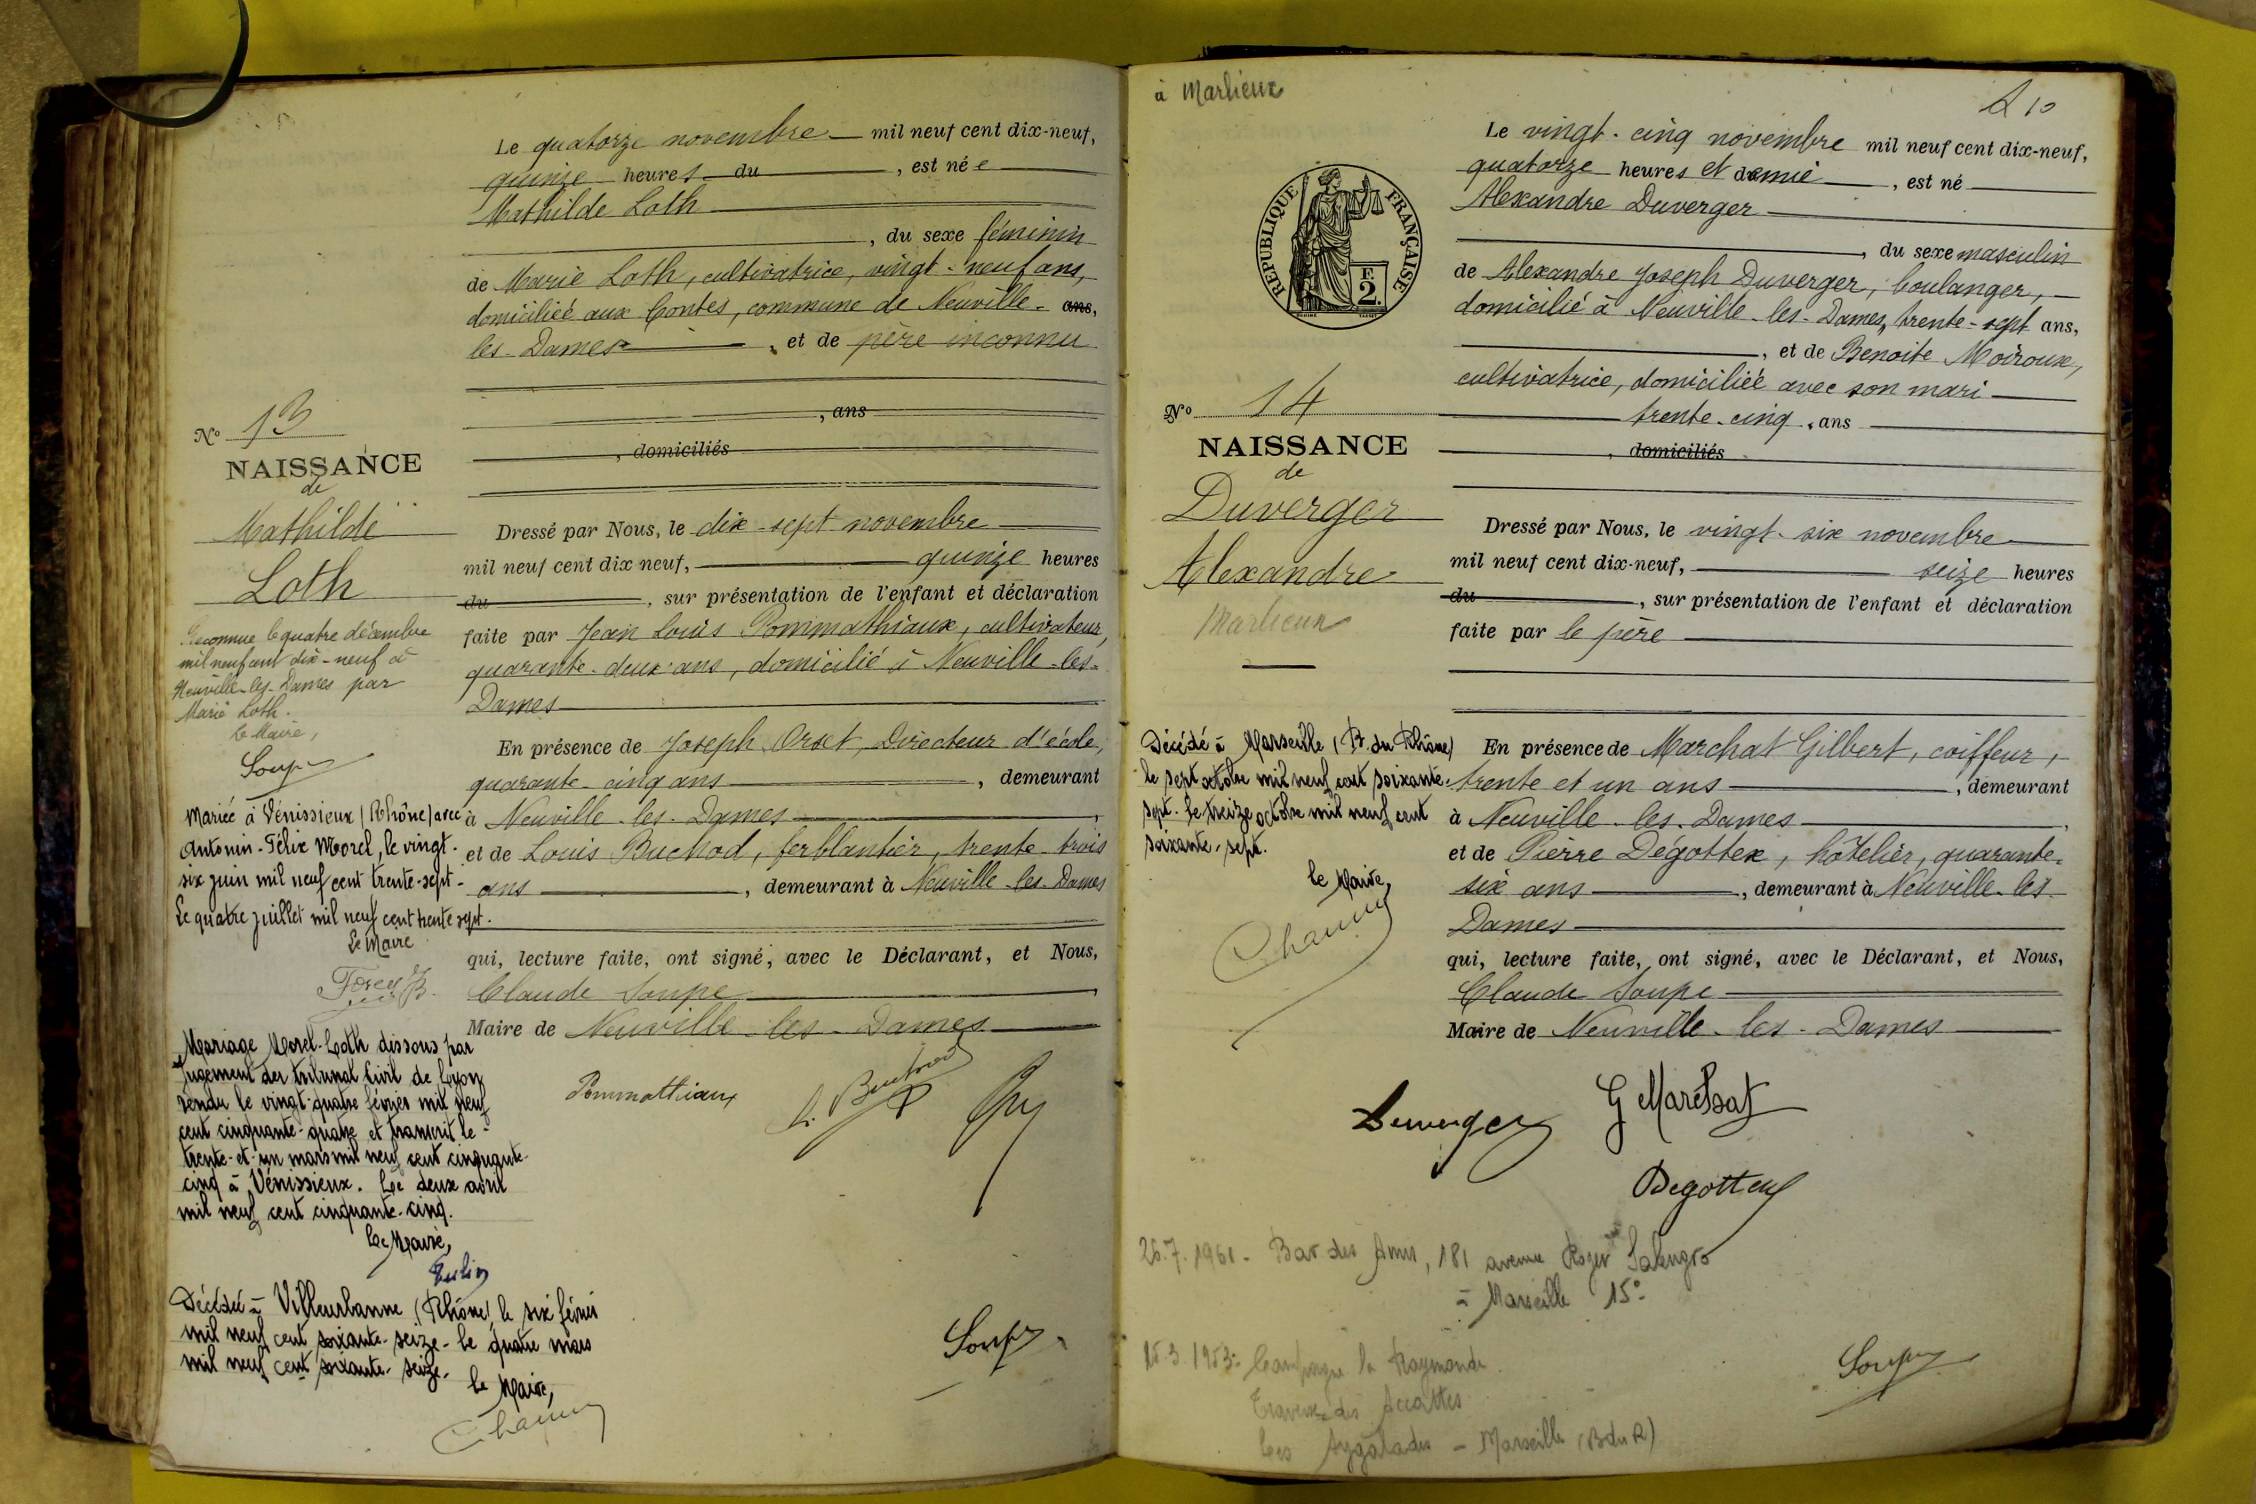 Le quatorze novembre mil neuf cent dix-neuf,
quinze heures du , est née
Mathilde Loth
, du sexe féminin
de Marie Loth, cultivatrice, vingt-neuf ans,
domiciliée aux Contes, commune de Neuville- ans,
les-Dames , et de père inconnu
, ans
, domiciliés
Nº 13
NAISSANCE
de
Mathilde
Loth
Reconnue le quatre décembre
mil neuf cent dix-neuf à
Neuville-les-Dames par
Marie Loth.
Le Maire,
Soupe
Mariée à Vénissieux (Rhône) avec
Antonin-Félix Morel, le vingt-
six juin mil neuf cent trente-sept-
Le quatre juillet mil neuf cent trente sept.
Le Maire
Mariage Morel-Loth dissous par
Jugement du tribunal Civil de Lyon
rendu le vingt-quatre février mil neuf
cent cinquante-quatre et transcrit le
trente-et-un mars mil neuf cent cinquante-
cinq à Vénissieux. Le deux avril
mil neuf cent cinquante-cinq.
Le Maire,
Décédée à Villeurbanne (Rhône) le six février
mil neuf cent soixante-seize- le quatre mars
mil neuf cent soixante-seize.
le Maire,
Dressé par Nous, le dix-sept novembre
mil neuf cent dix neuf, quinze heures
du , sur présentation de l'enfant et déclaration
faite par Jean Louis Pommathiaux, cultivateur,
quarante-deux ans, domicilié à Neuville-les-
Dames
En présence de Joseph Orset, Directeur d'école,
quarante-cinq ans , demeurant
à Neuville-les-Dames ,
et de Louis Buchod, ferblantier, trente-trois
ans , demeurant à Neuville-les-Dames
qui, lecture faite, ont signé, avec le Déclarant, et Nous,
Claude Soupe
Maire de Neuville-les-Dames
Pommathiaux
L. Buchod
Soupe
à Marlieux
10
Le vingt-cinq novembre mil neuf cent dix-neuf,
quatorze heures et demie , est né
Alexandre Duverger
, du sexe masculin
de Alexandre Joseph Duverger, boulanger,
domicilié à Neuville-les-Dames, trente-sept ans,
, et de Benoite Moiroux,
cultivatrice, domiciliée avec son mari
trente-cinq , ans
, domiciliés
RÉPUBLIQUE FRANÇAISE
F.
2.
Nº 14
NAISSANCE
de
Duverger
Alexandre
Marlieux
Décédé à Marseille (B. du Rhône)
le sept octobre mil neuf cent soixante-
sept. Le treize octobre mil neuf cent
soixante-sept.
le Maire,
Dressé par Nous, le vingt-six novembre
mil neuf cent dix-neuf, seize heures
du , sur présentation de l'enfant et déclaration
faite par le père
En présence de Marchat Gilbert, coiffeur,
trente et un ans , demeurant
à Neuville-les-Dames ,
et de Pierre Dégottex, hôtelier, quarante-
six ans , demeurant à Neuville-les-
Dames
qui, lecture faite, ont signé, avec le Déclarant, et Nous,
Claude Soupe
Maire de Neuville-les-Dames
Duverger
G Marchat
Degottex
26.7.1961- Bar des Amis, 181 avenue Roger Salengro
à Marseille 15º
15.3.1953: Campagne la Raymonde
Traverse des Accattes
Les Aygalades - Marseille (B du R)
Soupe